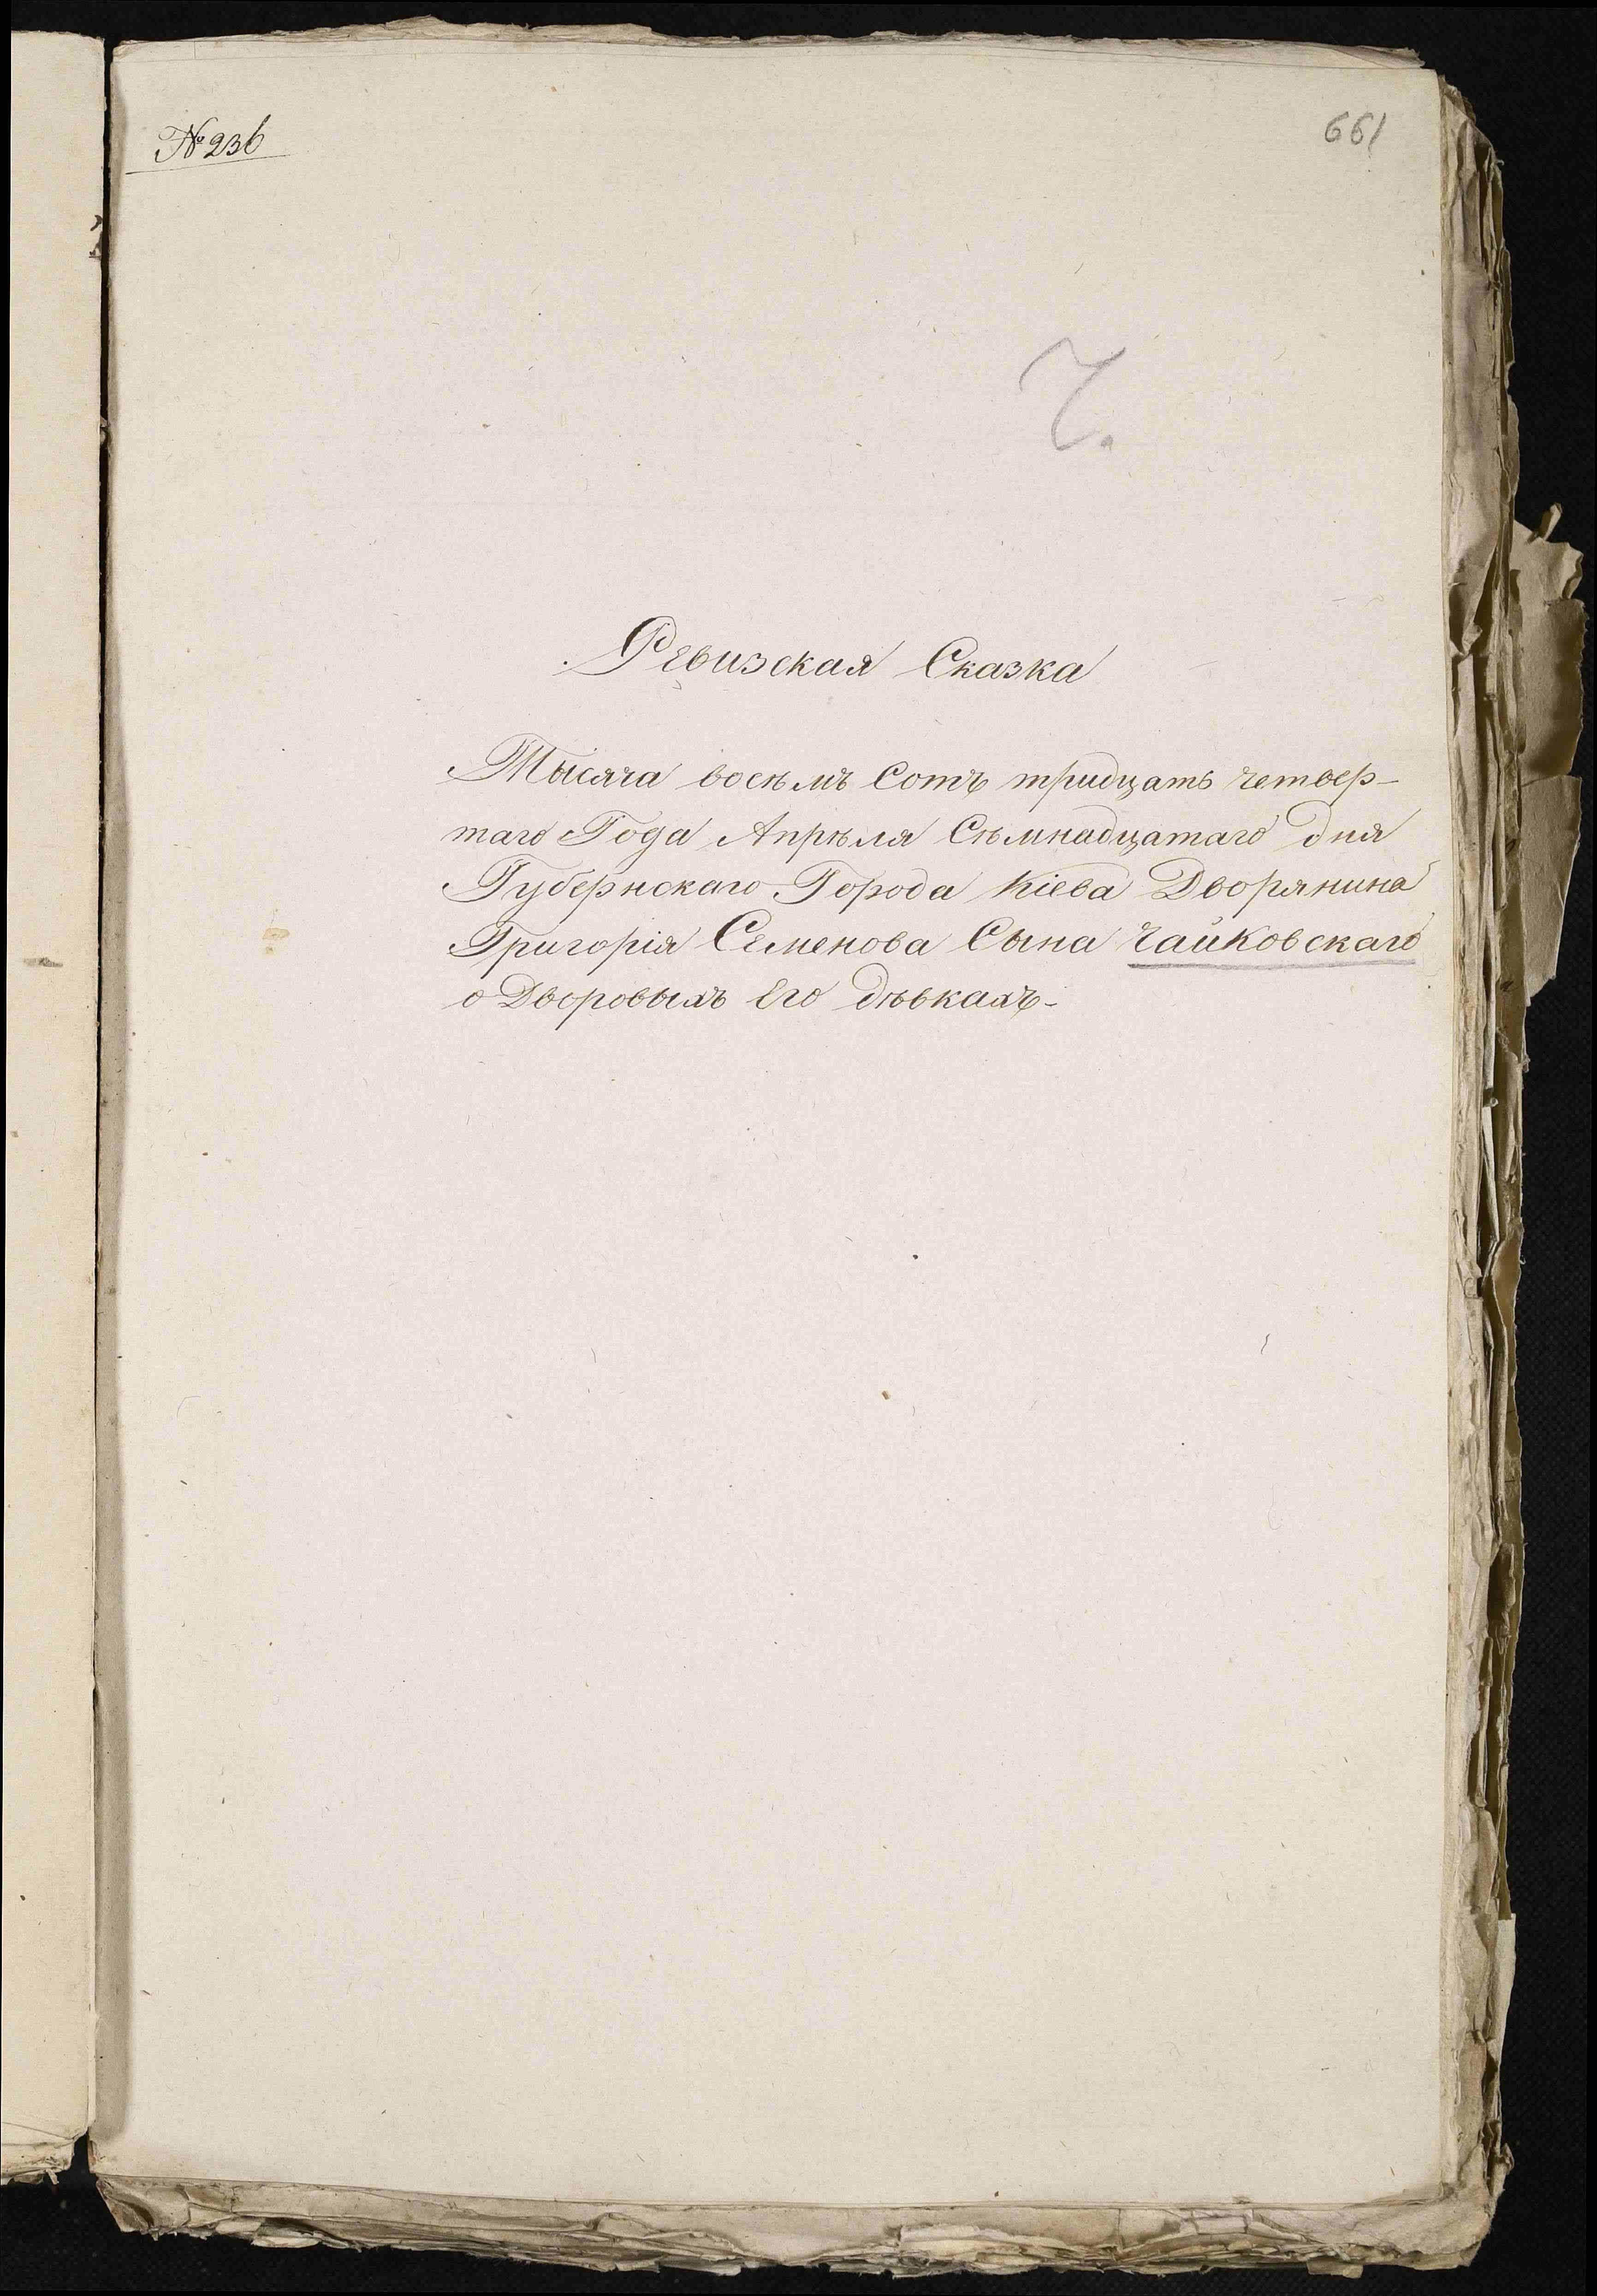 № 236
661
Ч.
Ревизская Сказка
Тысяча восѣмъ Сотъ тридцать четвер-
таго Года Апрѣля Сѣмнадцатаго дня
Губернскаго Города Кіева Дворянина
Григорія Семенова Сына Чайковскаго
о Дворовыхъ Его дѣвкахъ-